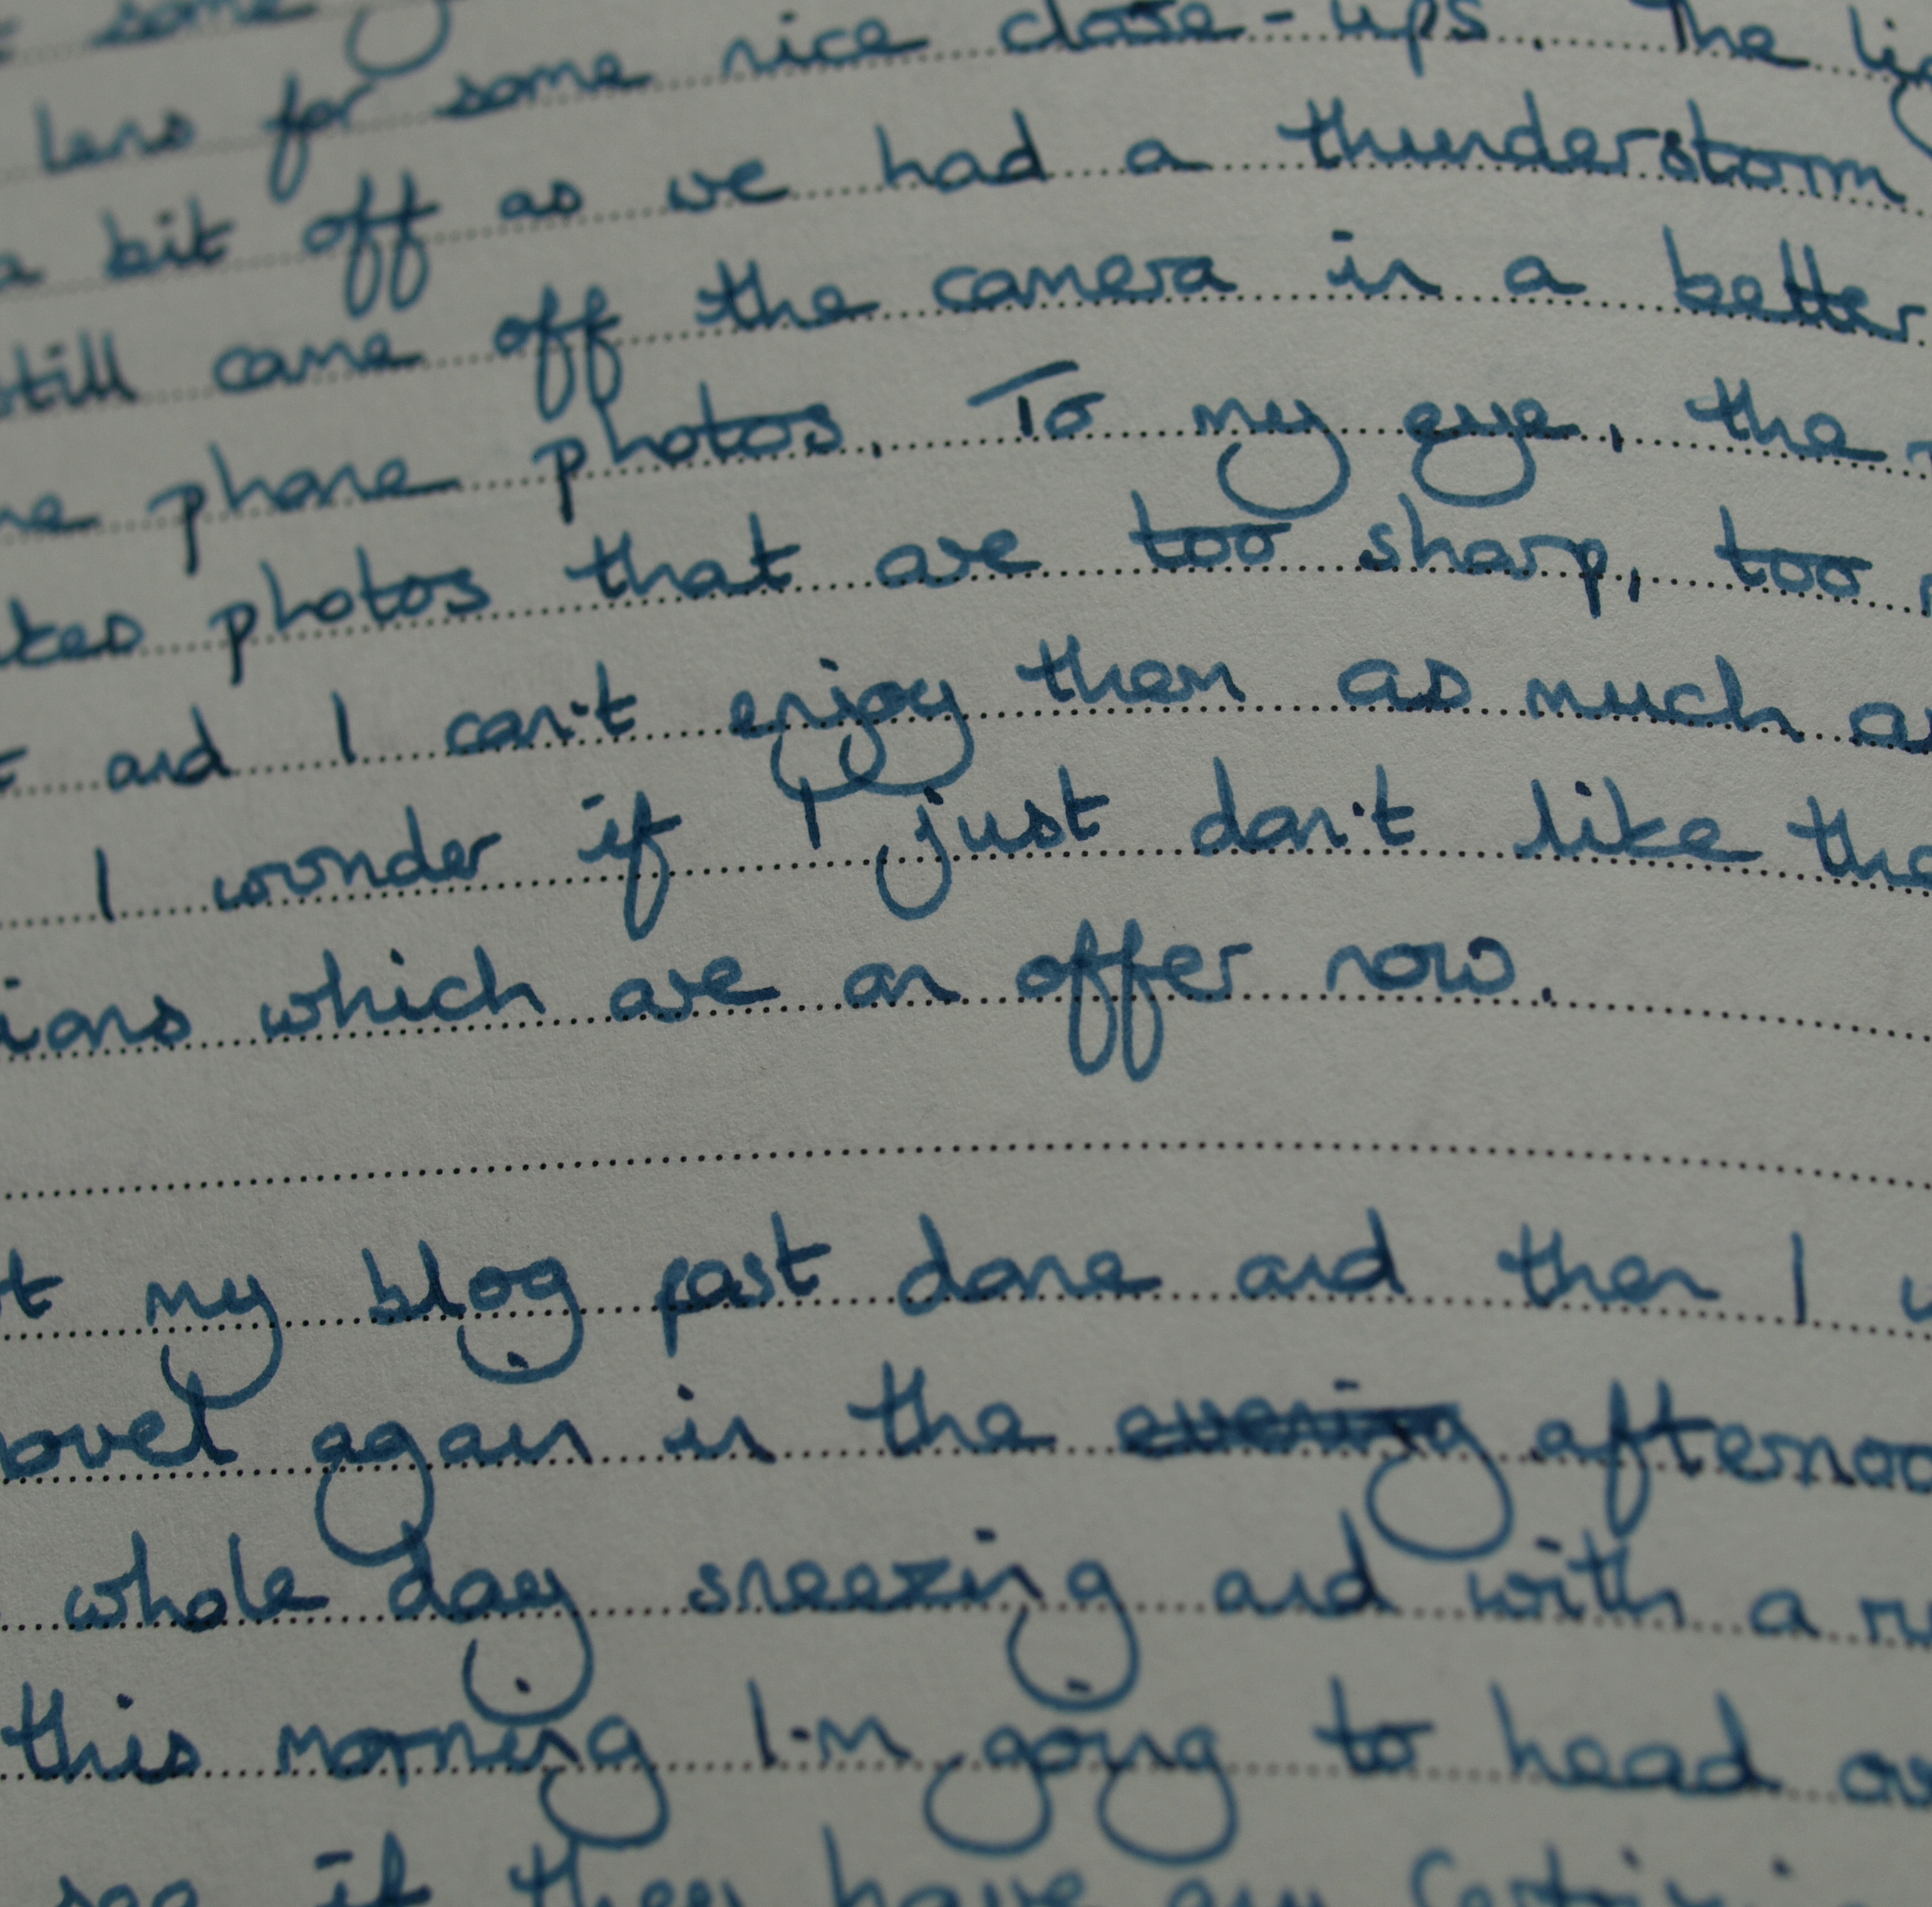 some
lens for some nice close-ups. The
a bit off as we had a thunderstorm
still came off the camera in a better
phone photos. To my eye, the
photos that are too sharp, too
and I can't enjoy them as much
I wonder if I just don't like the
which are on offer now.
my blog post done and then I
novel again in the evening afternoo
whole day sneezing and with a
this morning I'm going to head
see if they have any